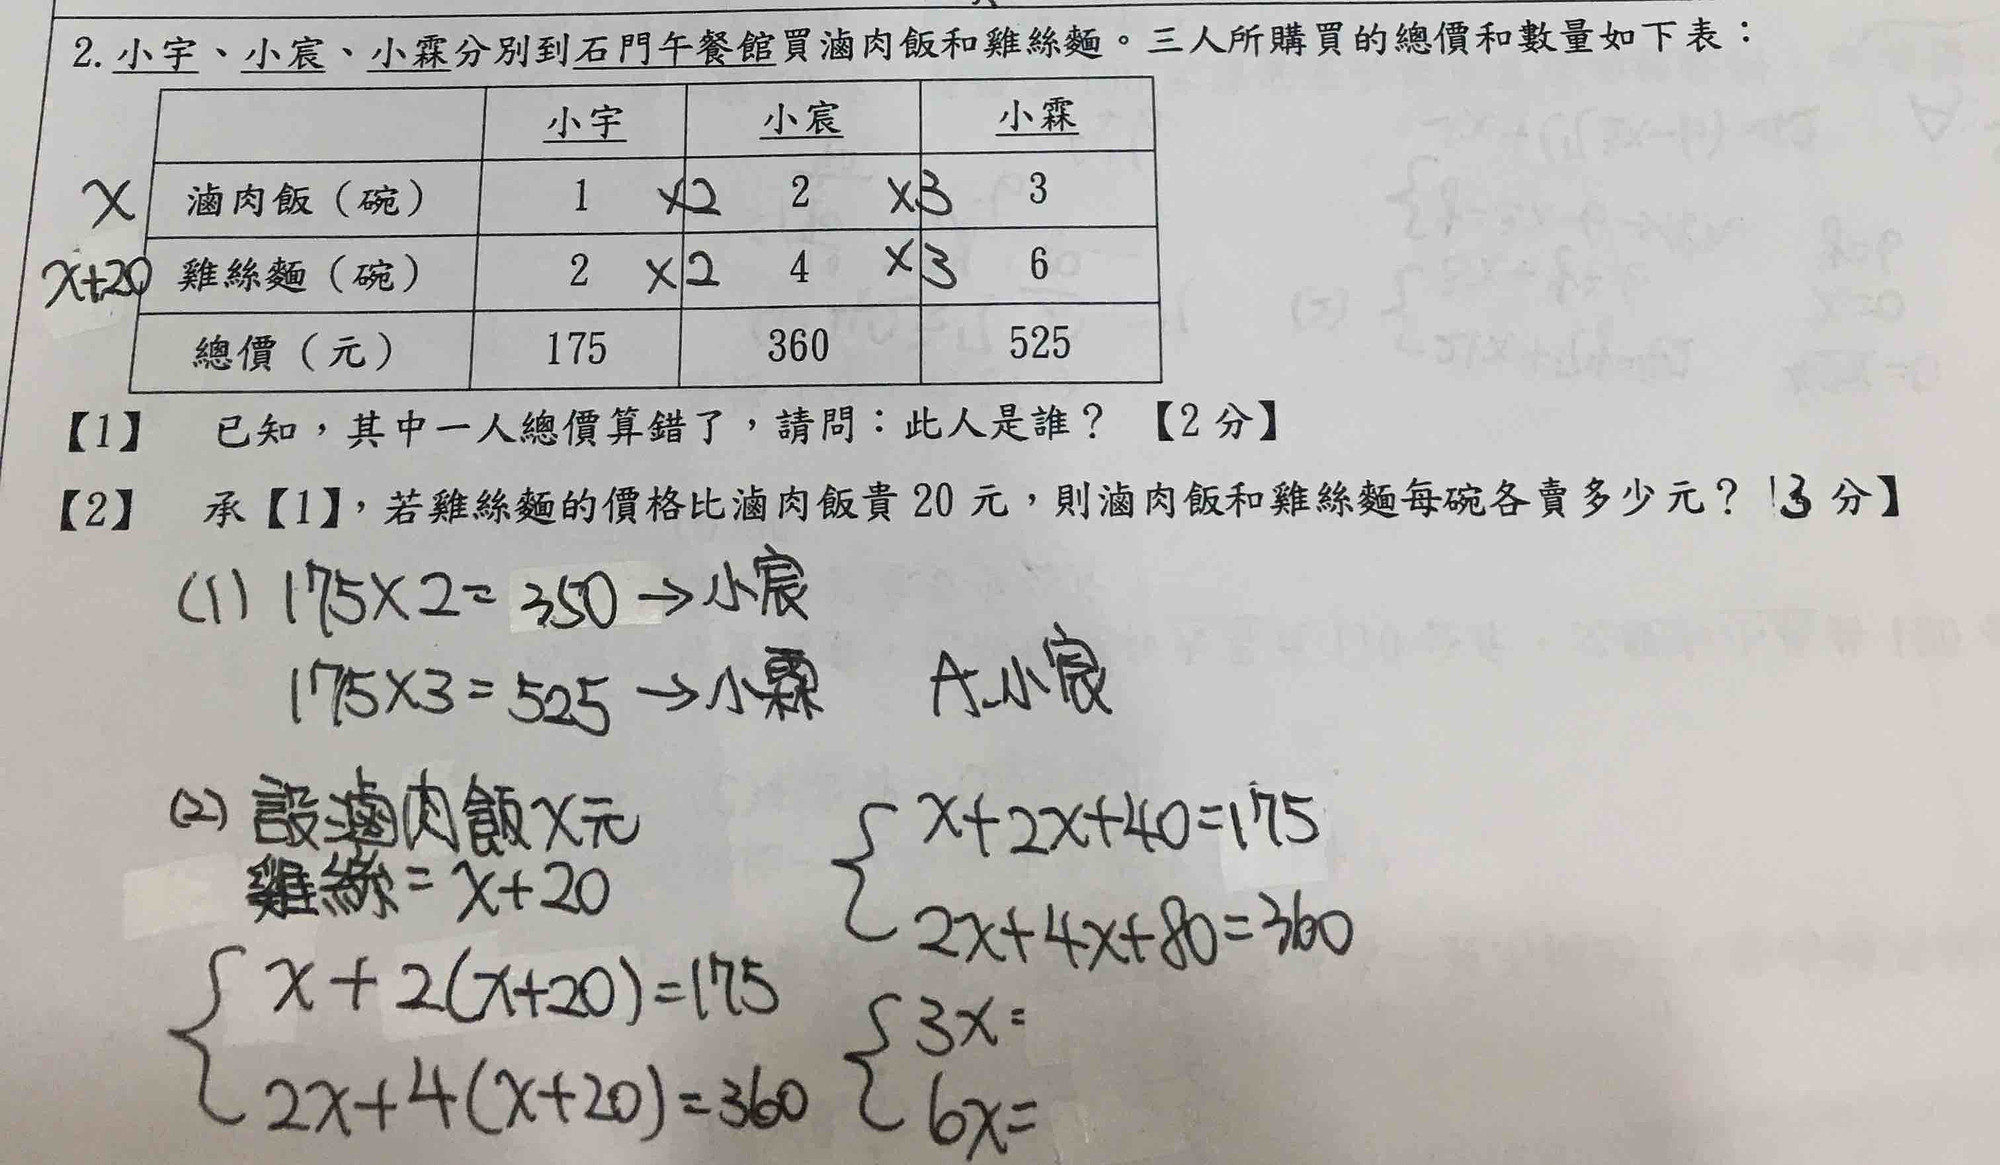 2. 小宇、小宸、小霖分別到石門午餐館買滷肉飯和雞絲麵。三人所購買的總價和數量如下表：
小宇 小宸 小霖
x 滷肉飯（碗） 1 ×2 2 ×3 3
x+20 雞絲麵（碗） 2 ×2 4 ×3 6
總價（元） 175 360 525
【1】 已知，其中一人總價算錯了，請問：此人是誰？ 【2 分】
【2】 承【1】，若雞絲麵的價格比滷肉飯貴 20 元，則滷肉飯和雞絲麵每碗各賣多少元？ 3 分】
(1) 175×2= 350 → 小宸
175×3=525 → 小霖 A:小宸
(2) 設滷肉飯x元
雞絲=x+20
{ x+2(x+20)=175
2x+4(x+20)=360
{ x+2x+40=175
2x+4x+80=360
{ 3x=
6x=